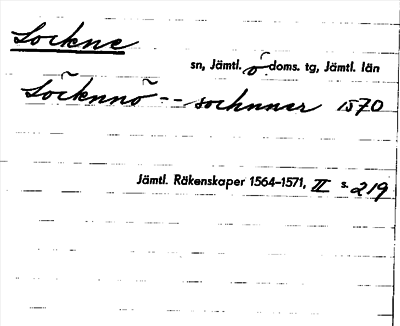 Lockne
sn, Jämtl. ö. doms. tg, Jämtl. län
Löcknnö -- sochnner 1570
Jämtl. Räkenskaper 1564–1571, II s. 219